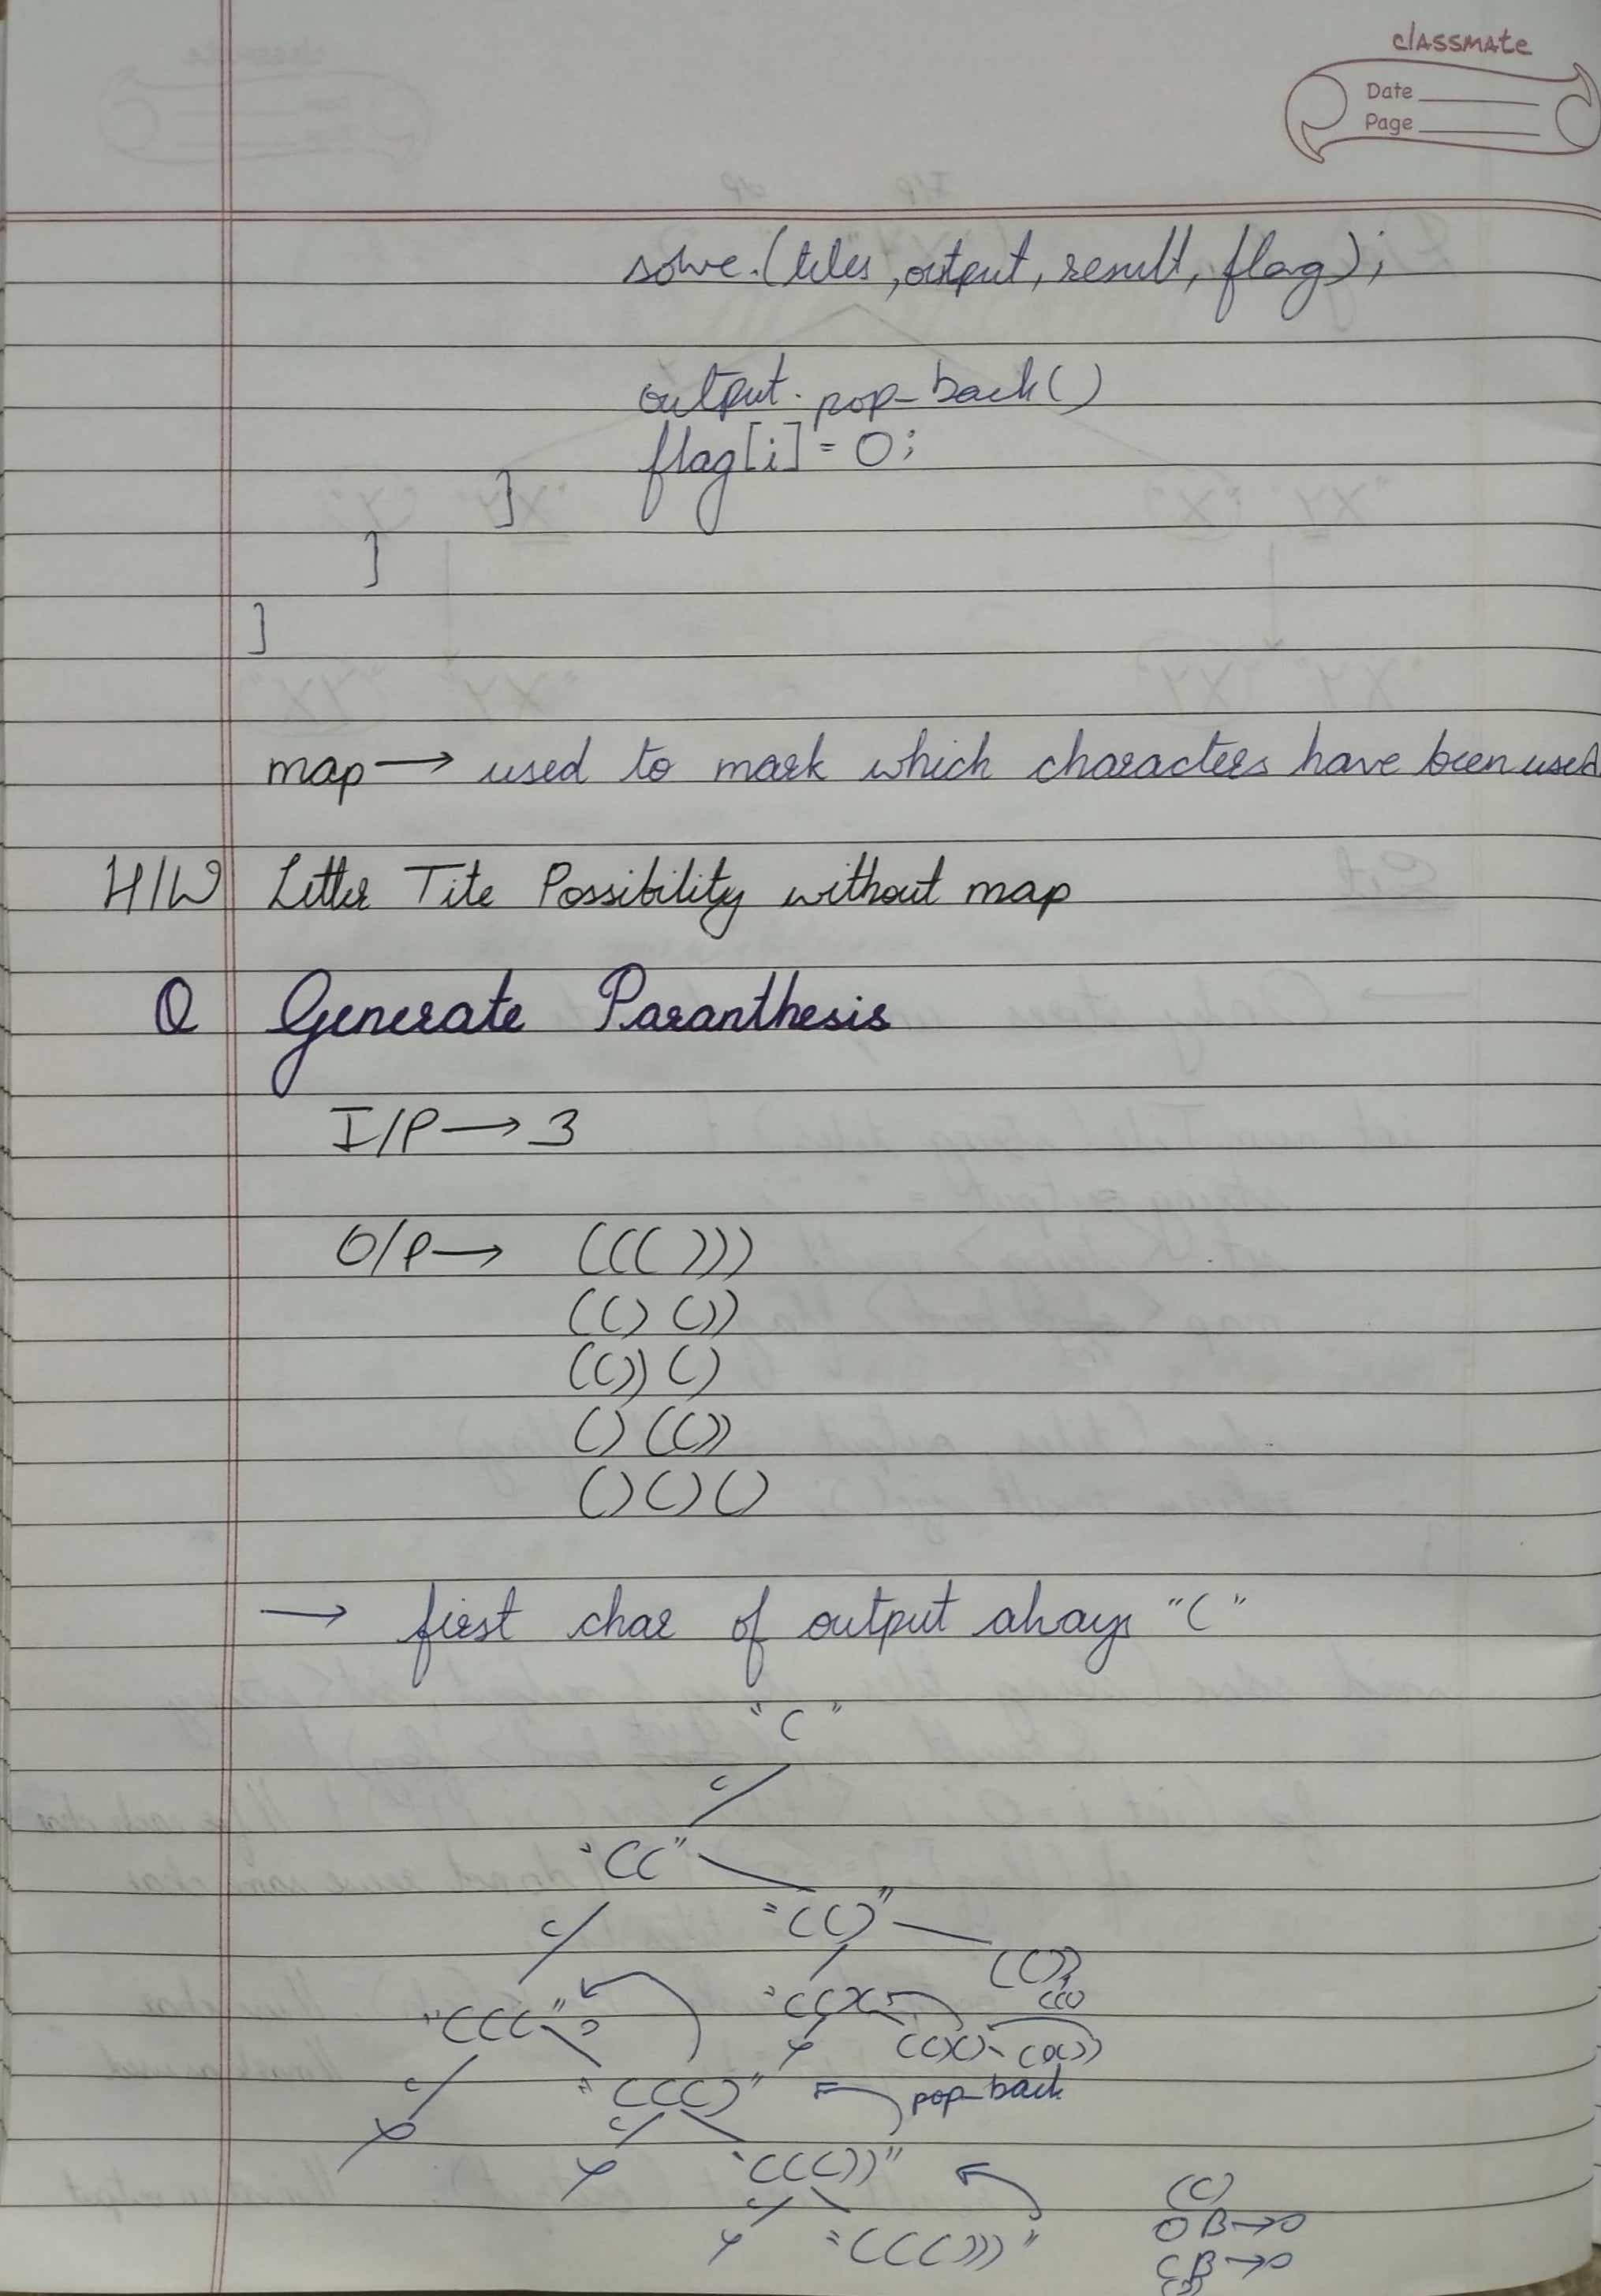 classmate
Date
Page
solve.(tiles, output, result, flag);
output. pop_back()
flag[i] = 0;
}
}
}
map → used to mark which characters have been used
H/W Letter Tite Possibility without map
Q Generate Paranthesis
I/P → 3
O/P → ((()))
(()())
(())()
()(())
()()()
→ first char of output always "("
"("
(
"(("
( "(()"
(())
"(((" ) "(()("
(()()
(()())
( "((()" pop_back
(
"((())"
( "((()))"
(()
OB → 0
CB → 0
())